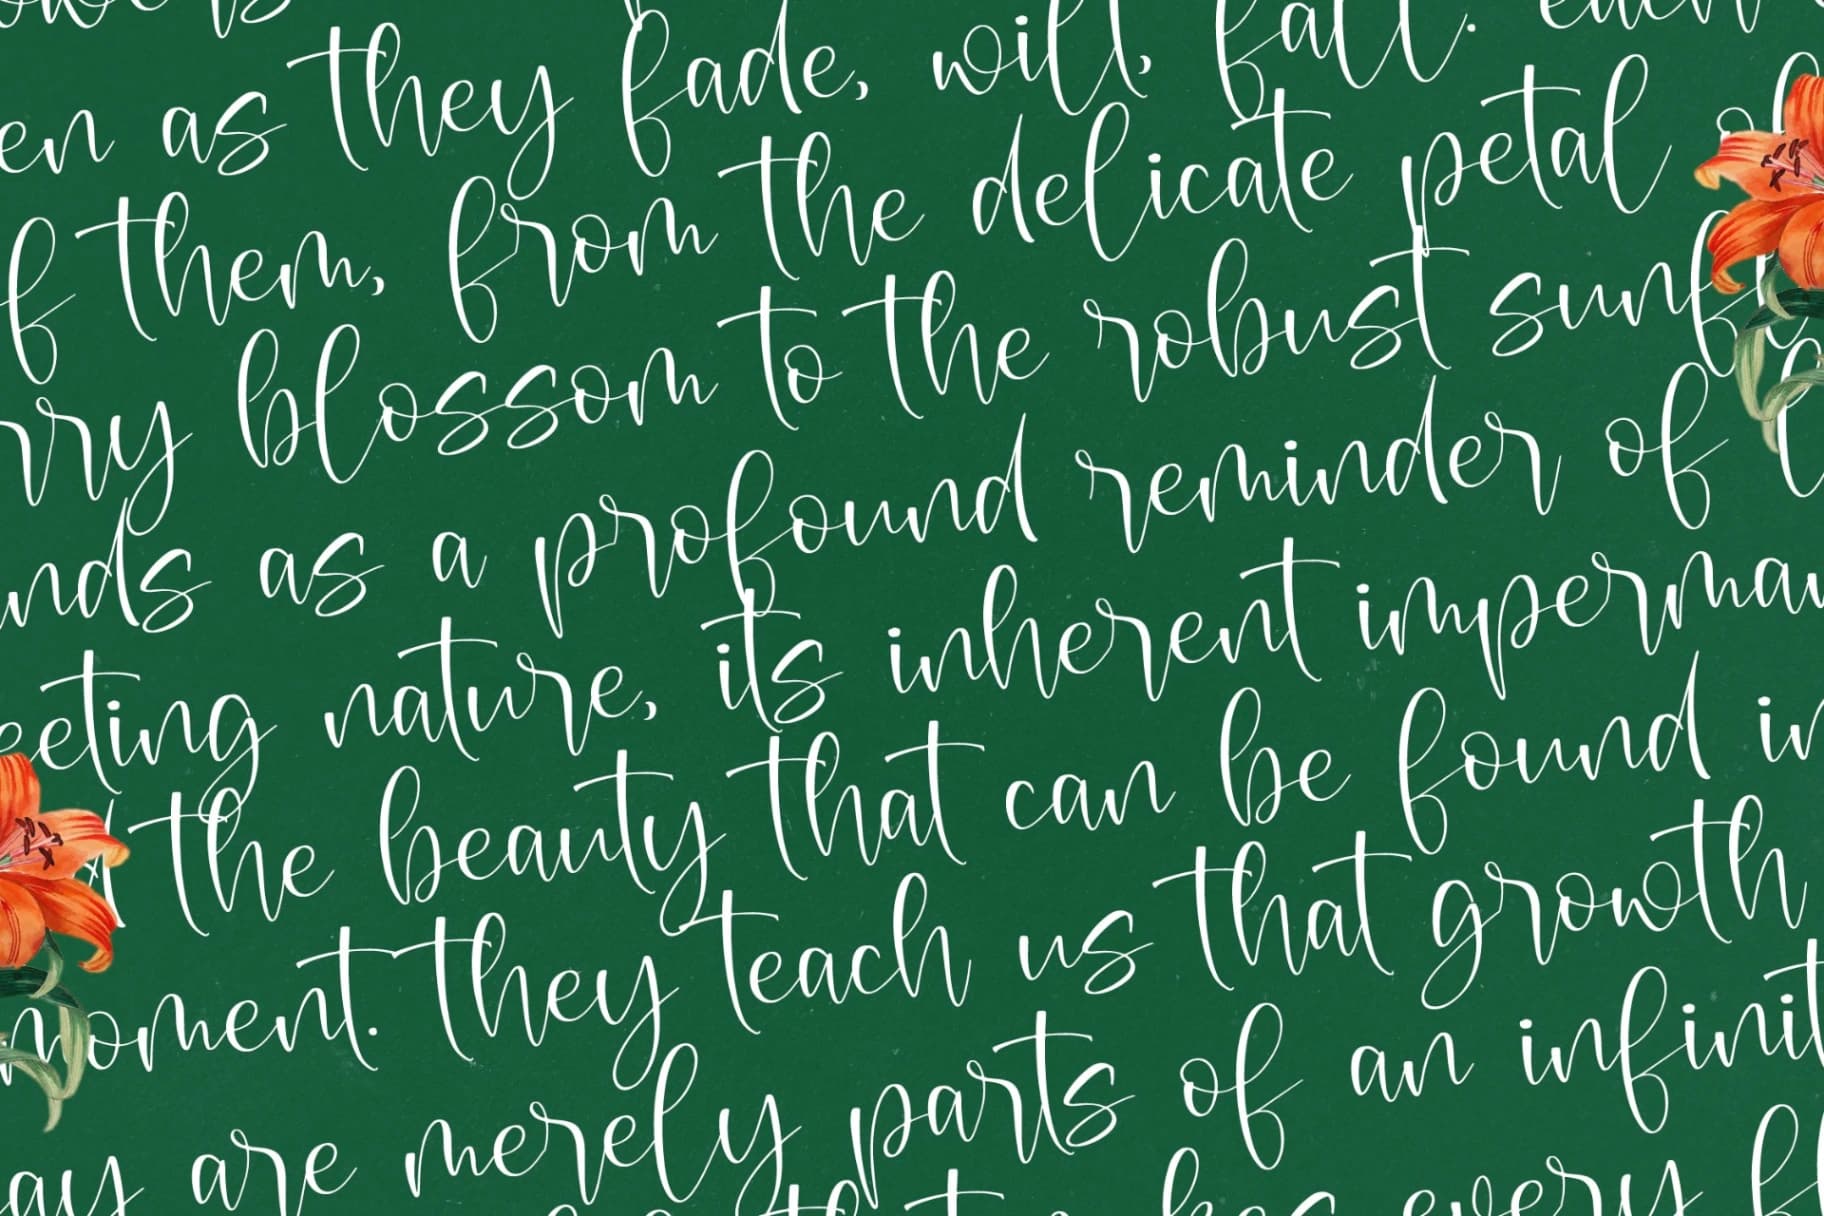 en as they fade, will, fall. each
f them, from the delicate petal of
rry blossom to the robust sunfl
nds as a profound reminder of l
eeting nature, its inherent imperman
the beauty that can be found in
moment. they teach us that growth
ay are merely parts of an infinit
every fl